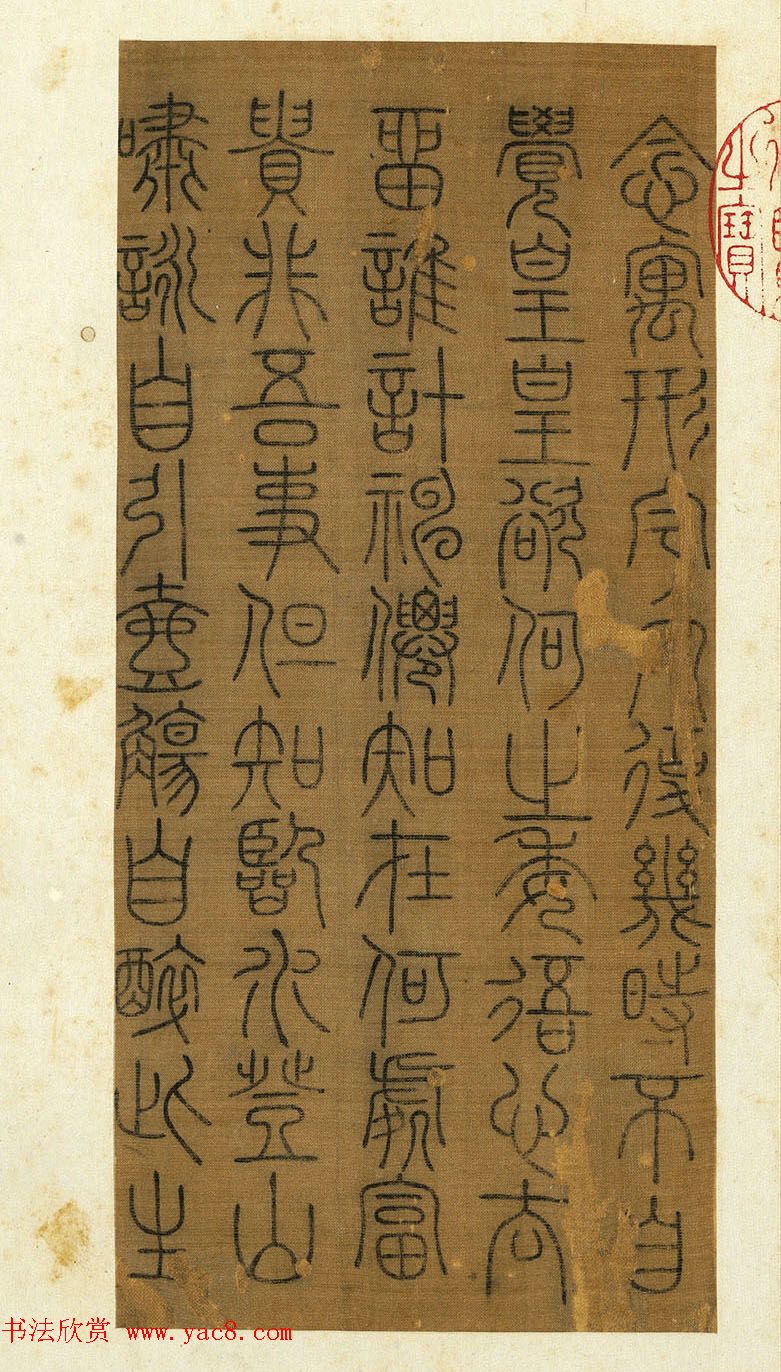 念寓形宇內復幾時不自
覺皇皇欲何之委吾心去
留誰計神僊知在何處富
貴非吾事但知臨水登山
嘯詠自引壺觴自醉此生
之寶
书法欣赏 www.yac8.com